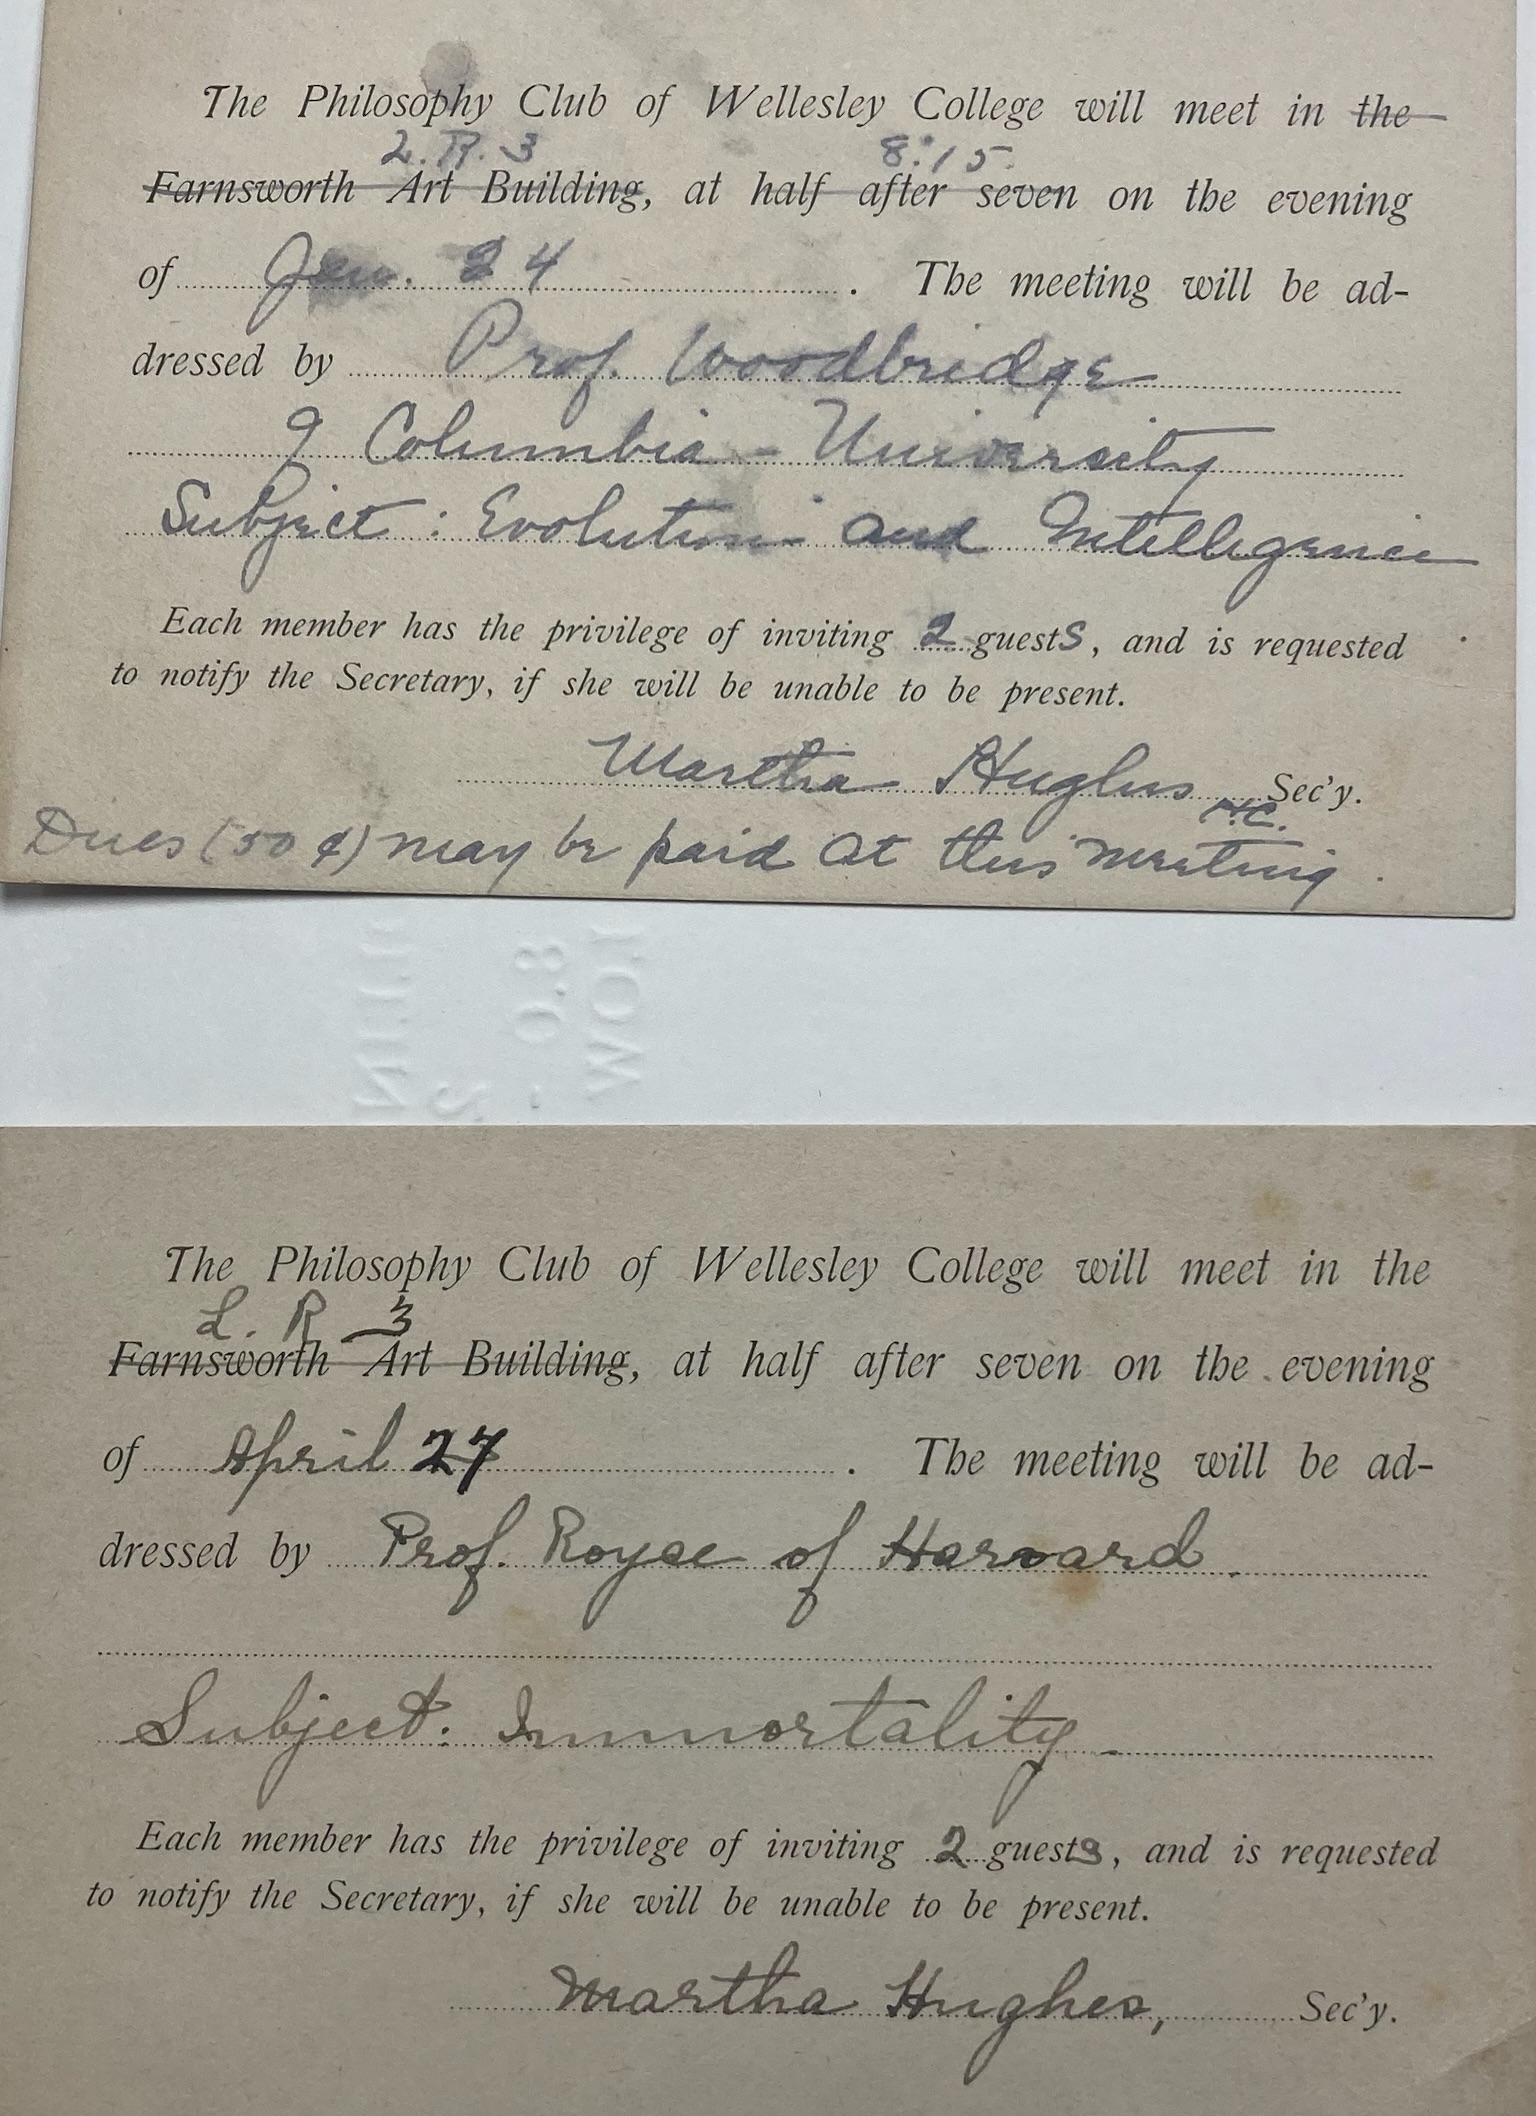 The Philosophy Club of Wellesley College will meet in the
L. R. 3 8:15
Farnsworth Art Building, at half after seven on the evening
of Jan. 24. The meeting will be ad-
dressed by Prof. Woodbridge
of Columbia - University
Subject: Evolution and Intelligence
Each member has the privilege of inviting 2 guests, and is requested
to notify the Secretary, if she will be unable to be present.
Martha Hughes Sec'y.
H.C.
Dues (50 ¢) may be paid at this meeting.
The Philosophy Club of Wellesley College will meet in the
L. R 3
Farnsworth Art Building, at half after seven on the evening
of April 27. The meeting will be ad-
dressed by Prof. Royce of Harvard.
Subject: Immortality
Each member has the privilege of inviting 2 guests, and is requested
to notify the Secretary, if she will be unable to be present.
Martha Hughes, Sec'y.